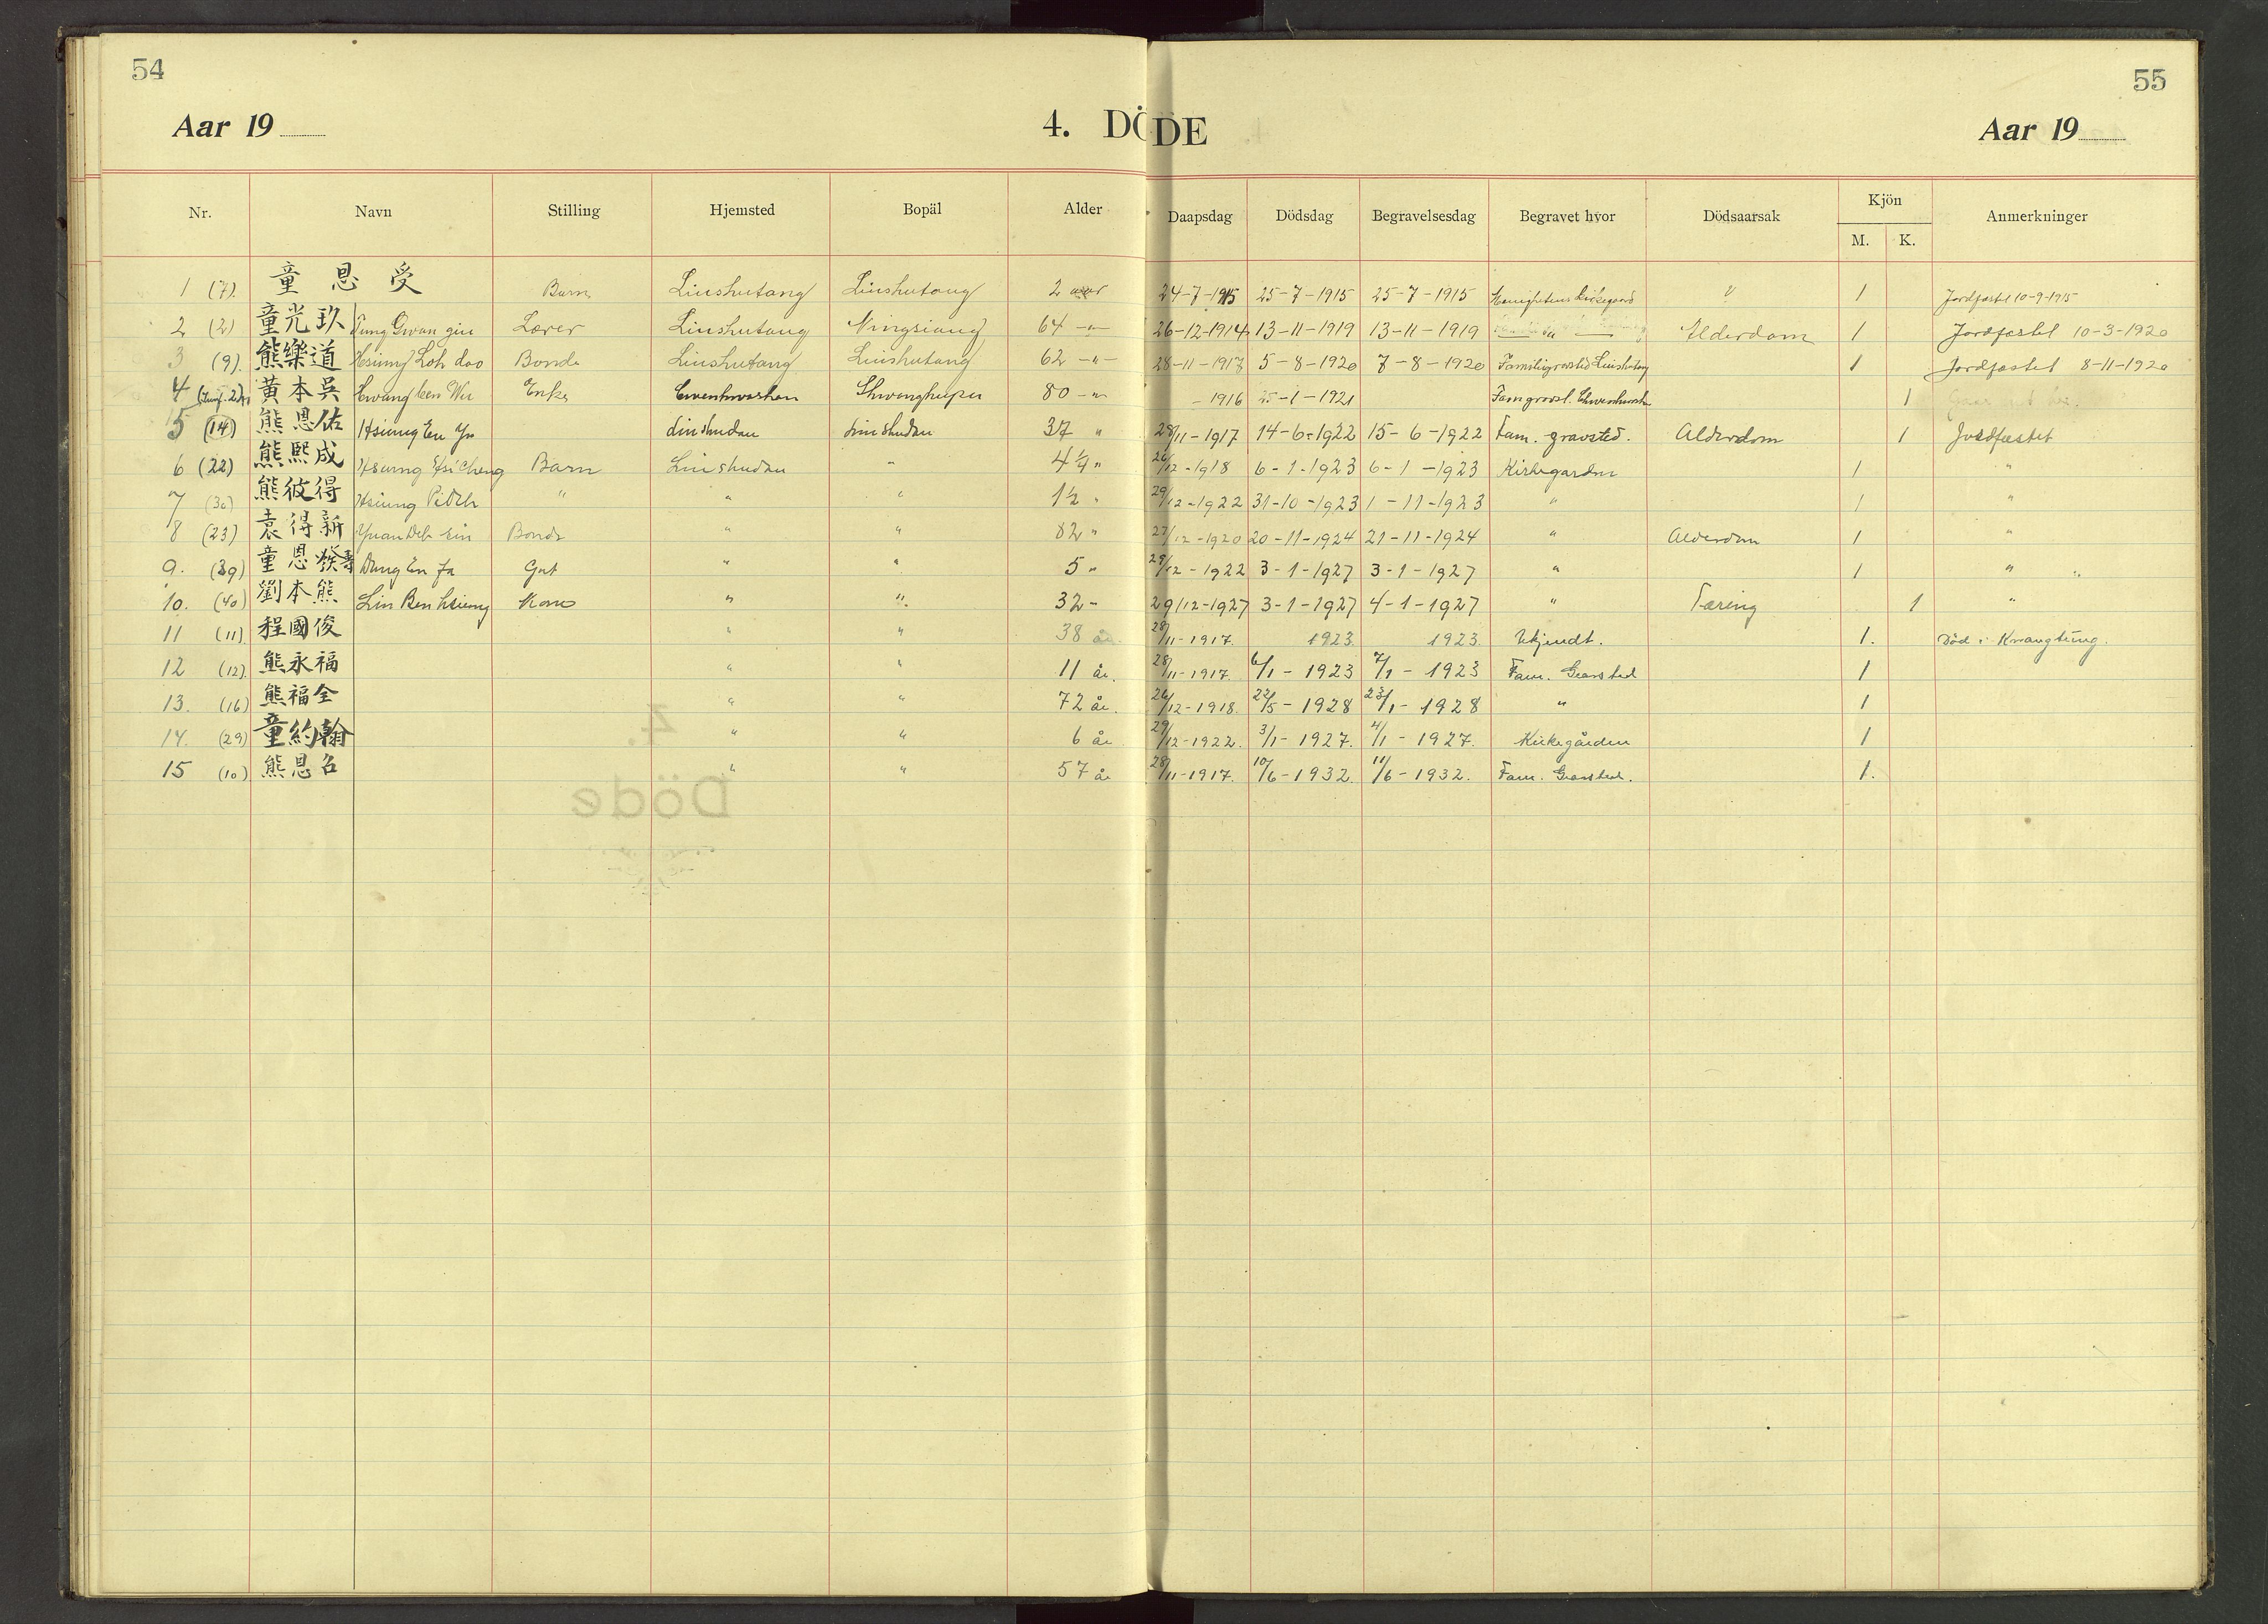 54
55
Aar 19
4. DÖDE
Aar 19
Nr. Navn Stilling Hjemsted Bopäl Alder Daapsdag Dödsdag Begravelsesdag Begravet hvor Dödsaarsak Kjön Anmerkninger
M. K.
1 (7). 童恩受 Barn Linshutang Linshutang 2 24-7-1915 25-7-1915 25-7-1915 1 Jordfæstet 10-9-1915
2 (2) 童光玖 Tung Gwan giu Lærer Linshutang Ningsiang 64 -"- 26-12-1914 13-11-1919 13-11-1919 " Alderdom 1 Jordfæstet 10-3-1920
3 (9). 熊樂道 Hsiung Loh dao Bonde Linshutang Linshutang 62 -"- 28-11-1917 5-8-1920 7-8-1920 Familiegravsted Linshutang 1 Jordfæstet 8-11-1920
4 黄本吳 Hwang ben Wu Enke Shwangfupu 80 -"- - 1916 25-1-1921 Fam gravst. 1
5 (14) 熊恩佑 Hsiung En Yu Linshudau Linshudau 37 " 28/11-1917 14-6-1922 15-6-1922 Fam. gravsted. Alderdom 1 Jordfæstet
6 (22) 熊熙成 Hsiung Hsi Cheng Barn Linshudau " 4 1/4 " 26/12-1918 6-1-1923 6-1-1923 Kirkegarden 1 "
7 (30) 熊彼得 Hsiung Pi Deh " " " 1 1/2 " 29/12-1922 31-10-1923 1-11-1923 " 1 "
8 (23) 袁得新 Yuan Deh Sin Bonde " " 82 " 27/12-1920 20-11-1924 21-11-1924 " Alderdom 1 "
9. (39) 童恩發壽 Dung En fa Gut " " 5 " 29/12-1922 3-1-1927 3-1-1927 " 1 " "
10. (40) 劉本熊 Liu Ben hsiung Kone " " 32 - 29/12-1927 3-1-1927 4-1-1927 " Tæring 1 "
11 (11). 程國俊 " " 38 år. 28/11-1917. 1923. 1923. Ukjendt. 1. Död i Kwangtung.
12 (12). 熊永福 " " 11 år. 28/11-1917. 6/1-1923 7/1-1923 Fam. Gravsted 1
13. (16) 熊福全 " " 72 år. 26/12-1918. 22/5-1928 23/1-1928 " 1
14. (29) 童約翰 " " 6 år 29/12-1922. 3/1-1927. 4/1-1927. Kirkegården 1
15 (10) 熊恩召 " " 57 år 28/11-1917. 10/6-1932. 11/6-1932. Fam. Gravsted. 1.